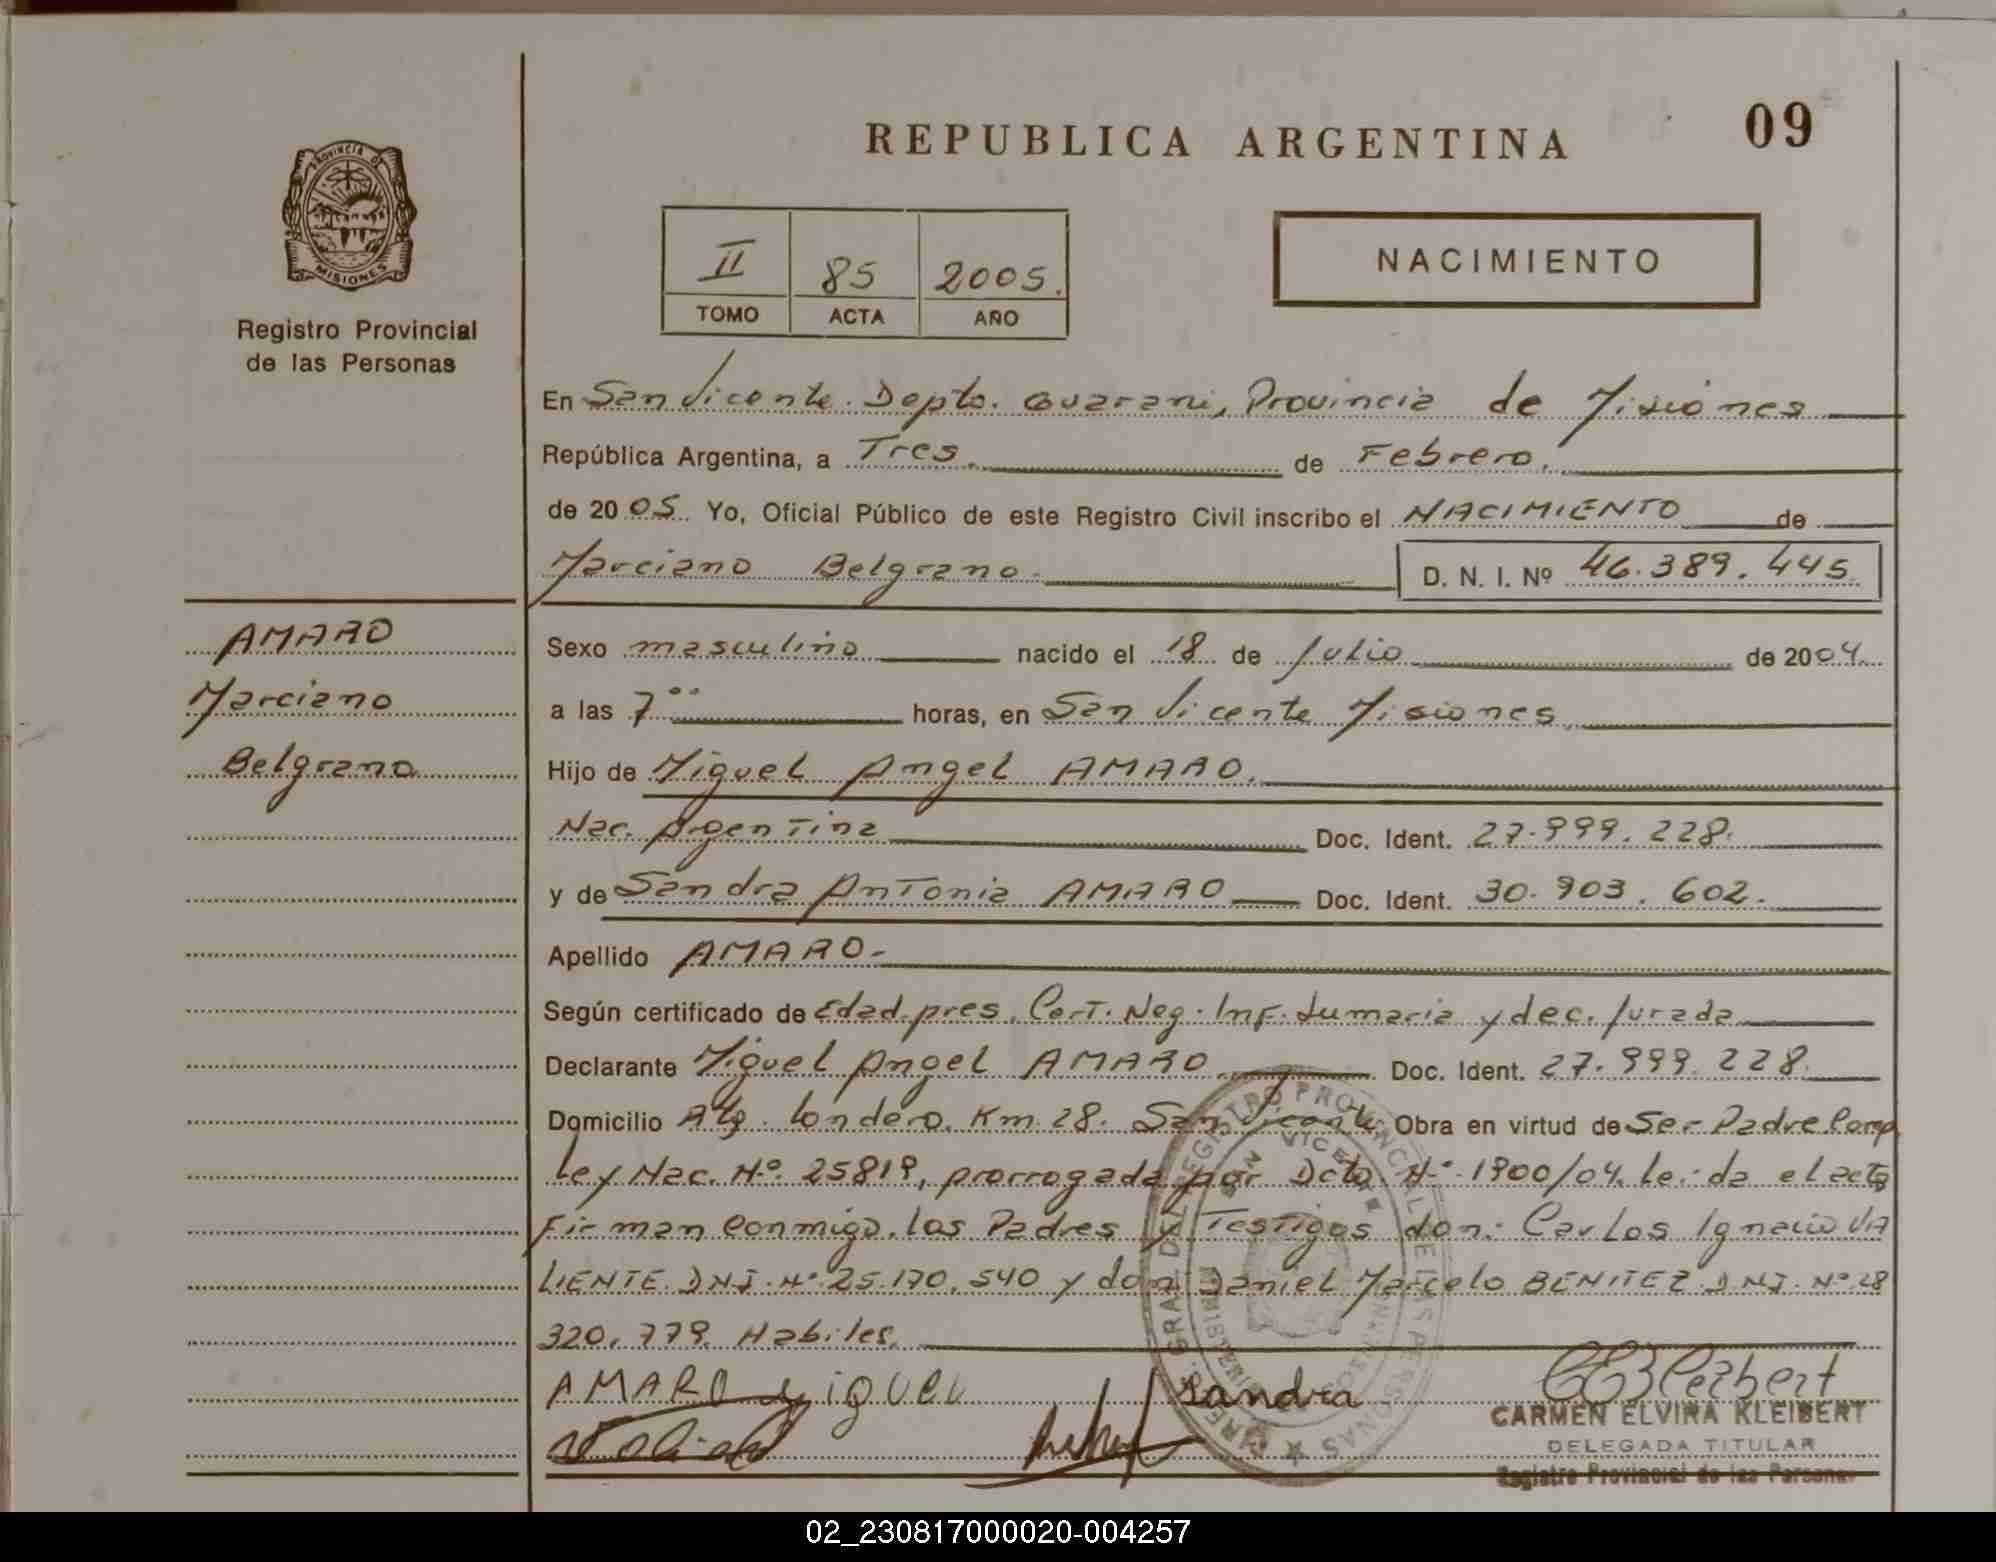 REPUBLICA ARGENTINA
09
PROVINCIA DE MISIONES
Registro Provincial
de las Personas
II 85 2005.
TOMO ACTA AÑO
NACIMIENTO
En San Vicente. Depto. Guarani, Provincia de Misiones
República Argentina, a Tres. de Febrero.
de 2005. Yo, Oficial Público de este Registro Civil inscribo el NACIMIENTO de
Marciano Belgrano. D. N. I. Nº 46.389.445.
AMARO
Marciano
Belgrano
Sexo masculino nacido el 18 de Julio de 2004.
a las 7°° horas, en San Vicente Misiones.
Hijo de Miguel Angel AMARO.
Nac. Argentina Doc. Ident. 27.999.228.
y de Sandra Antonia AMARO Doc. Ident. 30.903.602.
Apellido AMARO.-
Según certificado de Edad pres. Cert. Neg. Inf. Sumaria y dec. Jurada
Declarante Miguel Angel AMARO Doc. Ident. 27.999.228.
Domicilio Londero. Km. 28. San Vicente Obra en virtud de Ser Padre Comp.
Ley Nac. N.º 25819, prorrogada por Dcto. N.º 1900/04. Leida el acta
Firman Conmigo. los Padres y Testigos don: Carlos Ignacio VA
LIENTE. D.N.I. Nº 25.170.540 y don Daniel Marcelo BENITEZ. D.N.I. Nº 28
320.779. Habiles.
AMARO Miguel Sandra
CARMEN ELVIRA KLEIBERT
DELEGADA TITULAR
Registro Provincial de las Personas
02_230817000020-004257